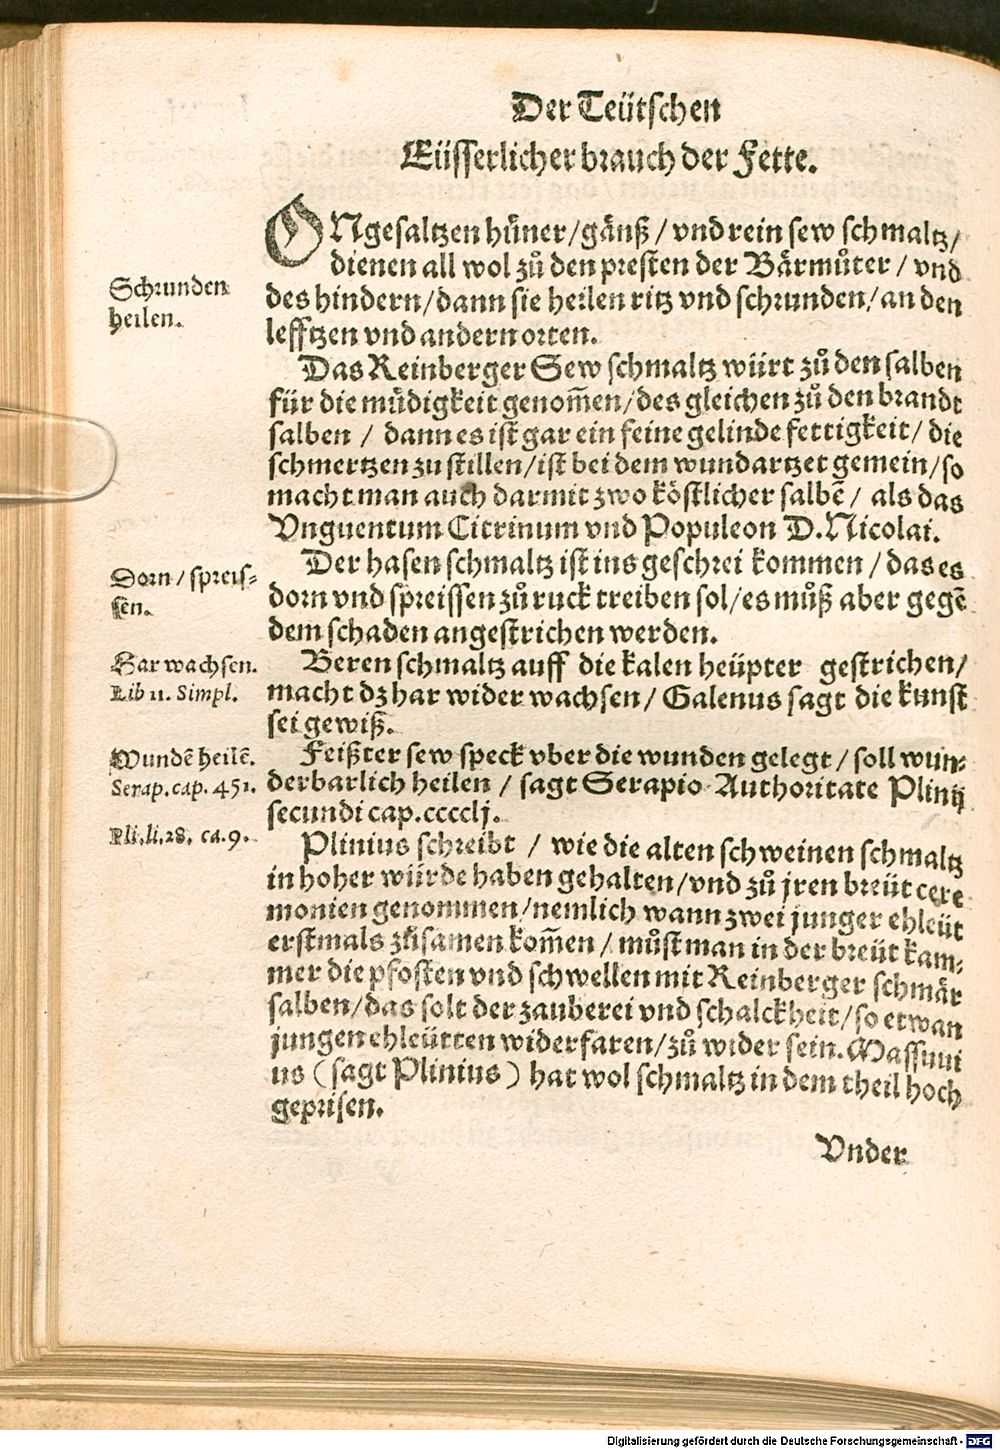 Der Teütschen
Eüsserlicher brauch der Fette.
ONgesaltzen hüner/gänß / vnd rein sew schmaltz/
dienen all wol zů den presten der Bärmůter / vnd
Schrunden
heilen.
des hindern/dann sie heilen ritz vnd schrunden/an den
lefftzen vnd andern orten.
Das Reinberger Sew schmaltz würt zů den salben
für die müdigkeit genom̃en/des gleichen zů den brandt
salben / dann es ist gar ein feine gelinde fettigkeit/ die
schmertzen zu stillen/ist bei dem wundartzet gemein/so
macht man auch darmit zwo köstlicher salbẽ / als das
Vnguentum Citrinum vnd Populeon D.Nicolai.
Der hasen schmaltz ist ins geschrei kommen / das es
Dorn / spreis-
sen.
dorn vnd spreissen zů ruck treiben sol/es můß aber gegẽ
dem schaden angestrichen werden.
Har wachsen.
Lib 11. Simpl.
Beren schmaltz auff die kalen heüpter gestrichen/
macht dz har wider wachsen/ Galenus sagt die kunst
sei gewiß.
Wundẽ heilẽ.
Serap. cap. 451.
Feißter sew speck vber die wunden gelegt / soll wun-
derbarlich heilen / sagt Serapio Authoritate Plinij
secundi cap.cccclj.
Pli.li.28. ca.9.
Plinius schreibt / wie die alten schweinen schmaltz
in hoher würde haben gehalten/vnd zů jren breüt cere
monien genommen/nemlich wann zwei junger ehleüt
erstmals zůsamen kom̃en / můst man in der breüt kam-
mer die pfosten vnd schwellen mit Reinberger schmär
salben/das solt der zauberei vnd schalckheit/so etwan
jungen ehleütten widerfaren/zů wider sein. Massuri
us (sagt Plinius) hat wol schmaltz in dem theil hoch
geprisen.
Vnder
Digitalisierung gefördert durch die Deutsche Forschungsgemeinschaft - DFG